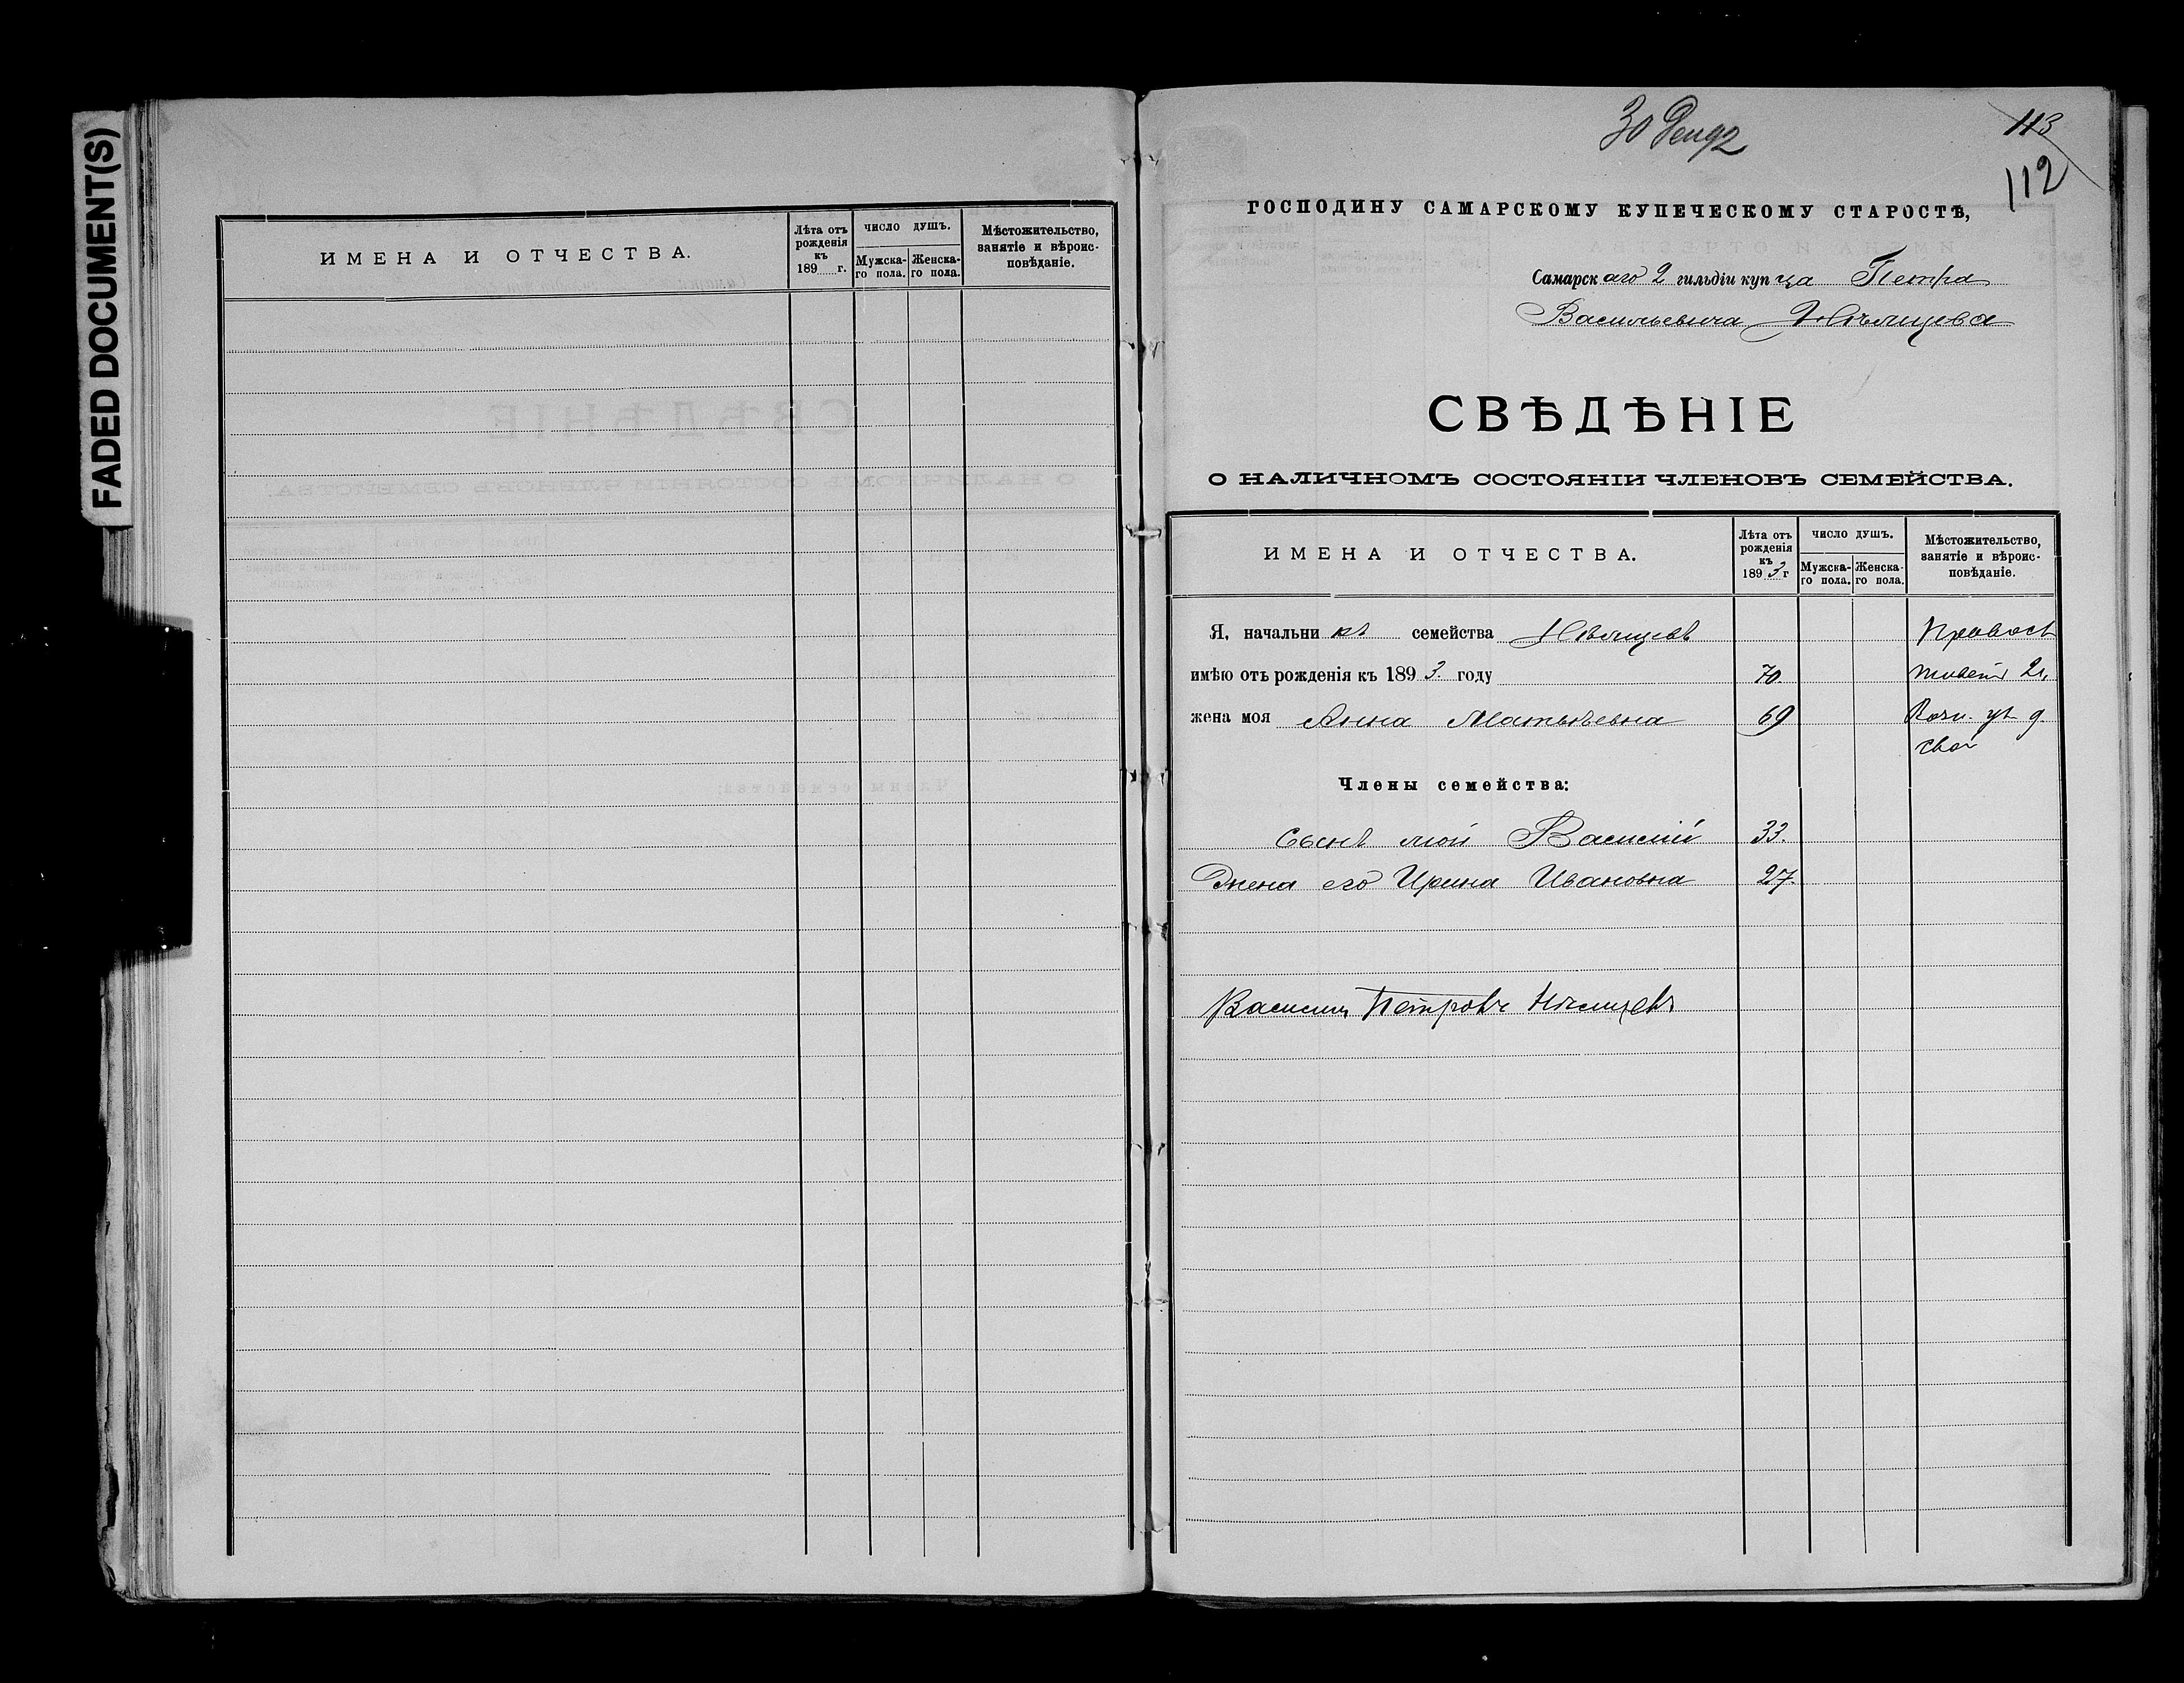 FADED DOCUMENT(S)
ИМЕНА И ОТЧЕСТВА.
Лѣта отъ рожденія къ 189 г.
ЧИСЛО ДУШЪ.
Мужска-го пола.
Женска-го пола.
Мѣстожительство, занятіе и вѣроис-повѣданіе.
30 Дек 92
113
112
ГОСПОДИНУ САМАРСКОМУ КУПЕЧЕСКОМУ СТАРОСТѢ,
Самарскаго 2 гильдіи купца Петра
Васильевича
СВѢДѢНІЕ
О НАЛИЧНОМЪ СОСТОЯНІИ ЧЛЕНОВЪ СЕМЕЙСТВА.
ИМЕНА И ОТЧЕСТВА.
Лѣта отъ рожденія къ 1893 г
ЧИСЛО ДУШЪ.
Мужска-го пола.
Женска-го пола.
Мѣстожительство, занятіе и вѣроис-повѣданіе.
Я, начальникъ семейства
имѣю отъ рожденія къ 1893. году 70.
жена моя Анна Матвѣевна 69
Члены семейства:
Сынъ мой Василій 33.
Жена его Ирина Ивановна 27.
Василий Петровъ